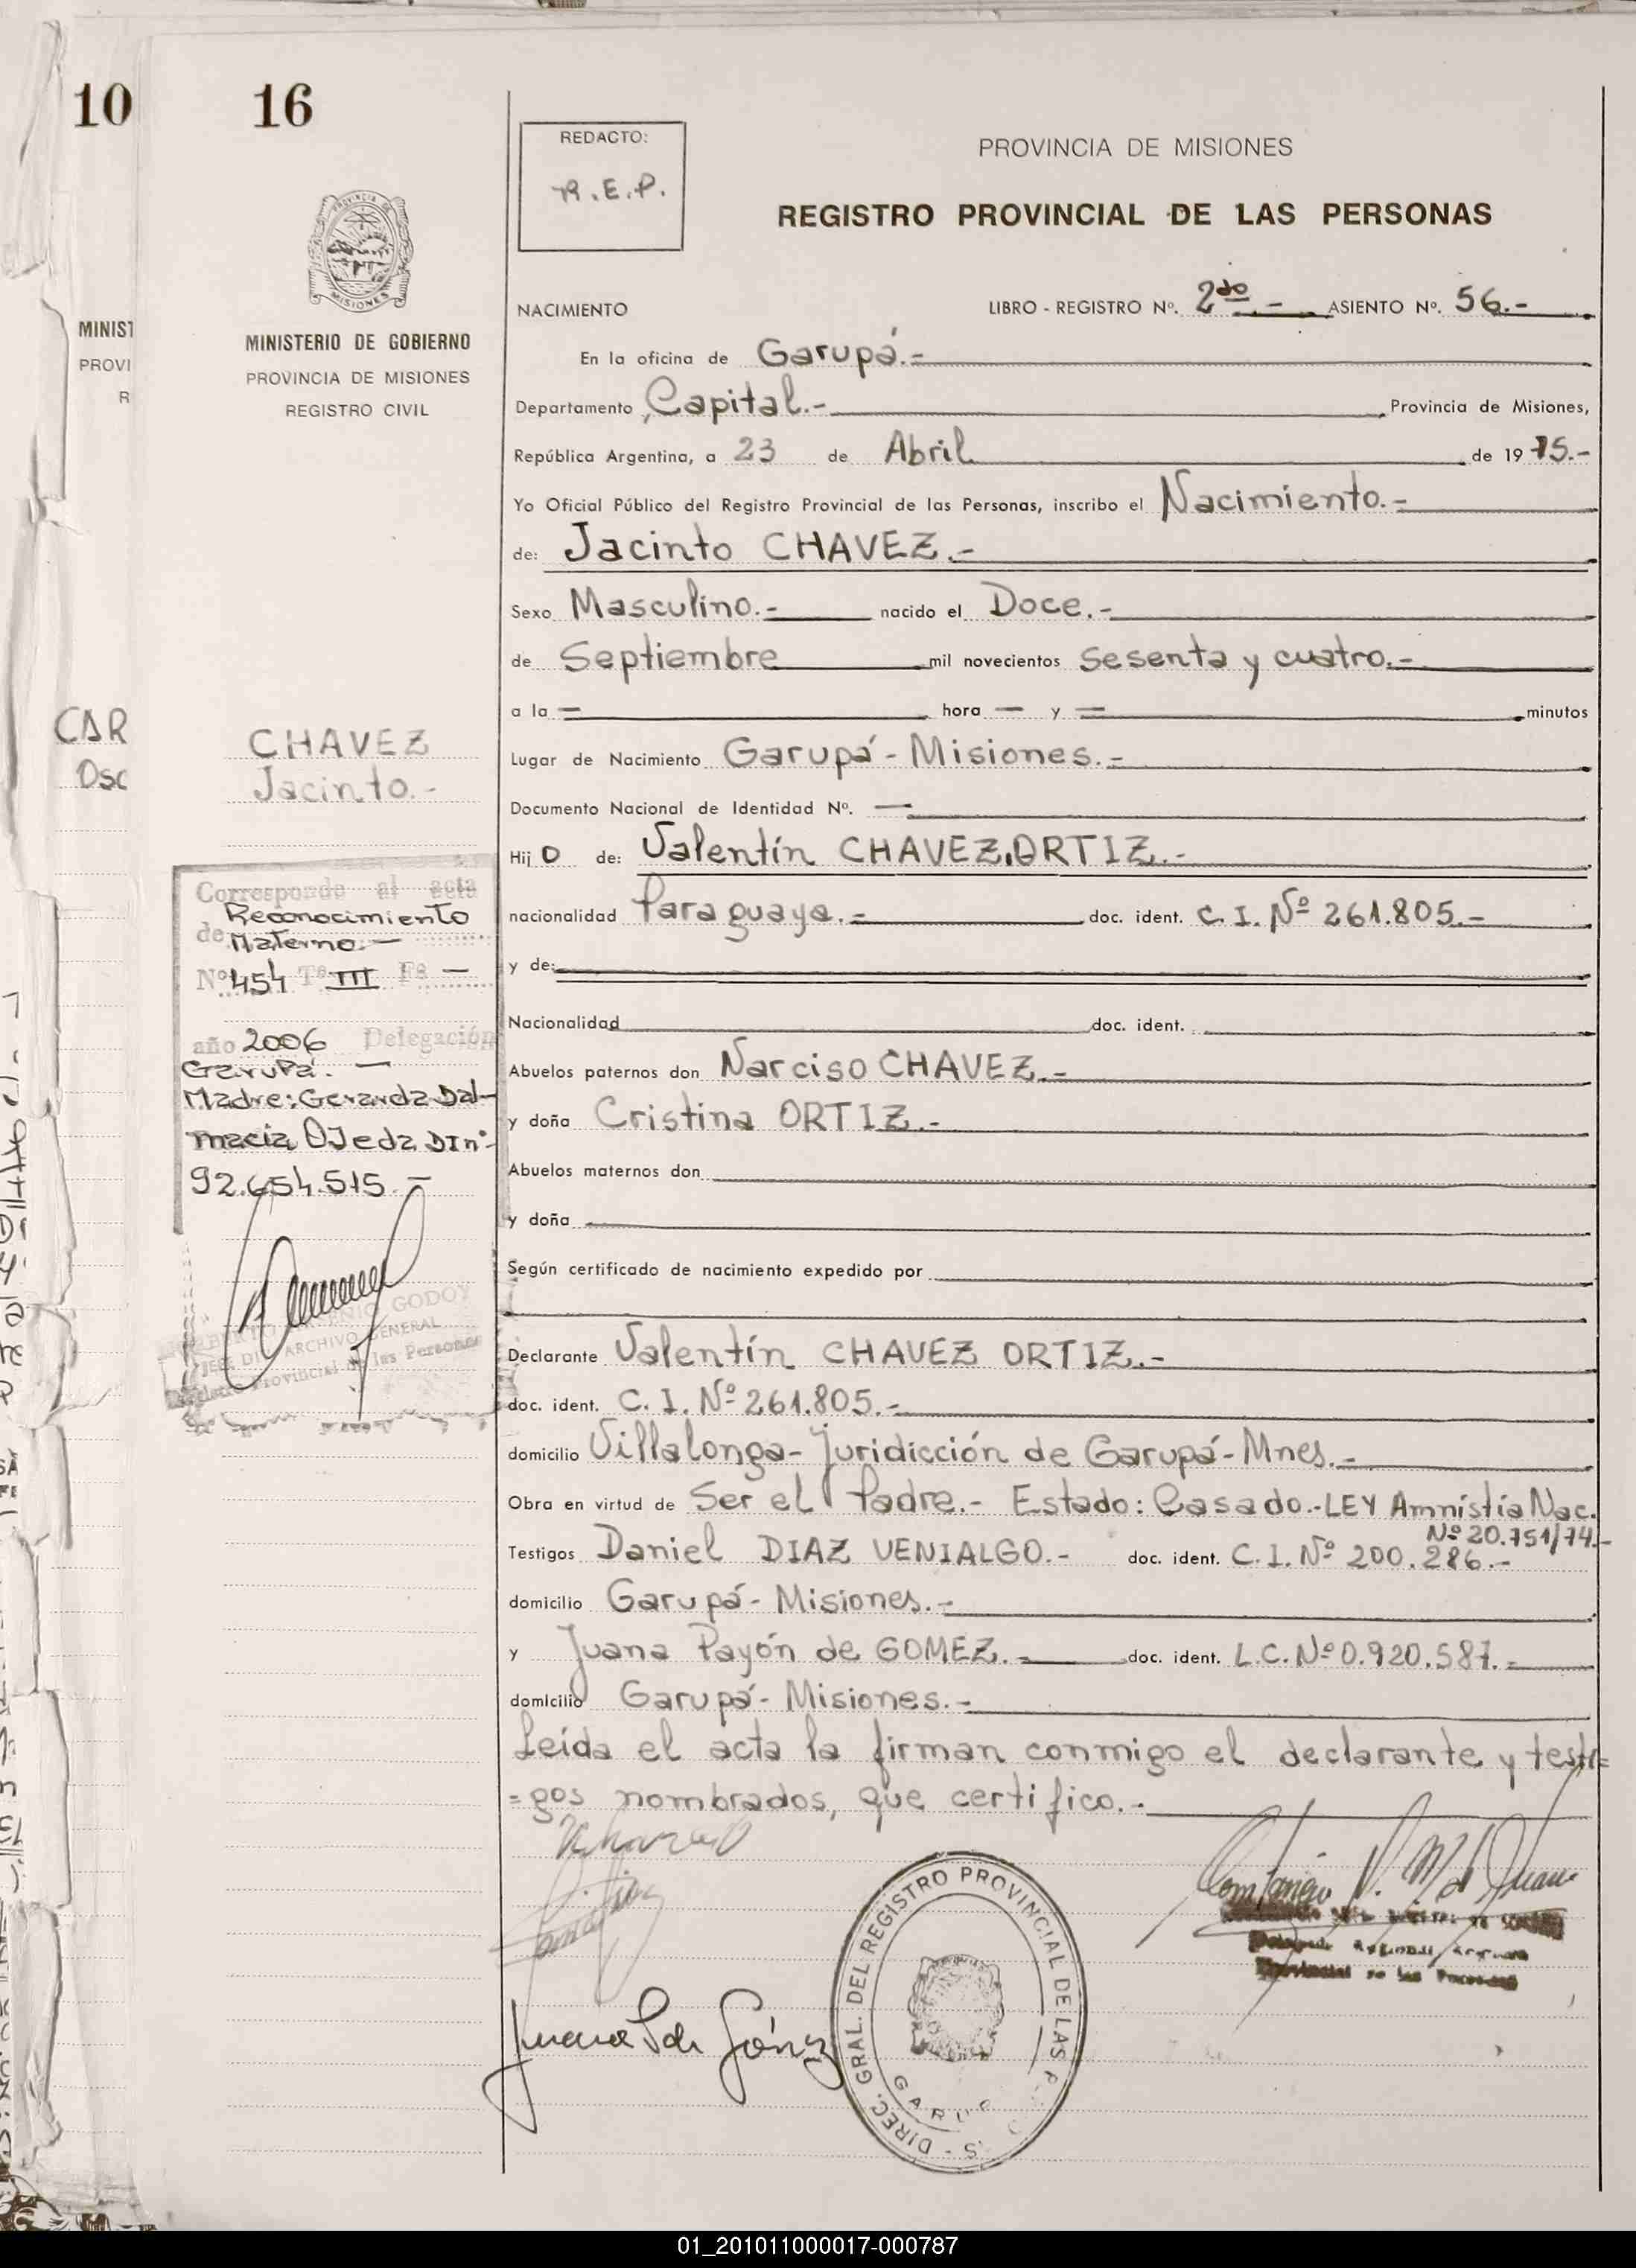 10
16
MINIST
PROVI
R
CAR
Osc
PROVINCIA DE
MISIONES
MINISTERIO DE GOBIERNO
PROVINCIA DE MISIONES
REGISTRO CIVIL
CHAVEZ
Jacinto.-
Corresponde al acta
de Reconocimiento
Materno.-
Nº 454 Tº III Fº -
año 2006 Delegación
Garupá. -
Madre: Gerarda Dal-
macia OJeda DI nº
92.654.515.-
GODOY
JEFE DIV. ARCHIVO GENERAL
Provincial de las Personas
REDACTO:
R.E.P.
PROVINCIA DE MISIONES
REGISTRO PROVINCIAL DE LAS PERSONAS
NACIMIENTO LIBRO - REGISTRO Nº. 2do.- ASIENTO Nº. 56.-
En la oficina de Garupá.-
Departamento Capital.- Provincia de Misiones,
República Argentina, a 23 de Abril de 1975.-
Yo Oficial Público del Registro Provincial de las Personas, inscribo el Nacimiento.-
de: Jacinto CHAVEZ.-
Sexo Masculino.- nacido el Doce.-
de Septiembre mil novecientos sesenta y cuatro.-
a la = hora — y = minutos
Lugar de Nacimiento Garupá - Misiones.-
Documento Nacional de Identidad Nº. —
Hijo de: Valentín CHAVEZ ORTIZ.-
nacionalidad Paraguaya.- doc. ident. C.I. Nº 261.805.-
y de:
Nacionalidad doc. ident.
Abuelos paternos don Narciso CHAVEZ.-
y doña Cristina ORTIZ.-
Abuelos maternos don
y doña
Según certificado de nacimiento expedido por
Declarante Valentín CHAVEZ ORTIZ.-
doc. ident. C.I. Nº 261.805.-
domicilio Villalonga - Juridicción de Garupá - Mnes.-
Obra en virtud de Ser el Padre.- Estado: Casado.- LEY Amnistía Nac.
Nº 20.751/74.-
Testigos Daniel DIAZ VENIALGO.- doc. ident. C.I. Nº 200.286.-
domicilio Garupá - Misiones.-
y Juana Payón de GOMEZ.- doc. ident. L.C. Nº 0.920.587.-
domicilio Garupá - Misiones.-
Leída el acta la firman conmigo el declarante y testi=
=gos nombrados, que certifico.-
Juana P de Gómez
DIREC. GRAL. DEL REGISTRO PROVINCIAL DE LAS P
GARUP
01_201011000017-000787